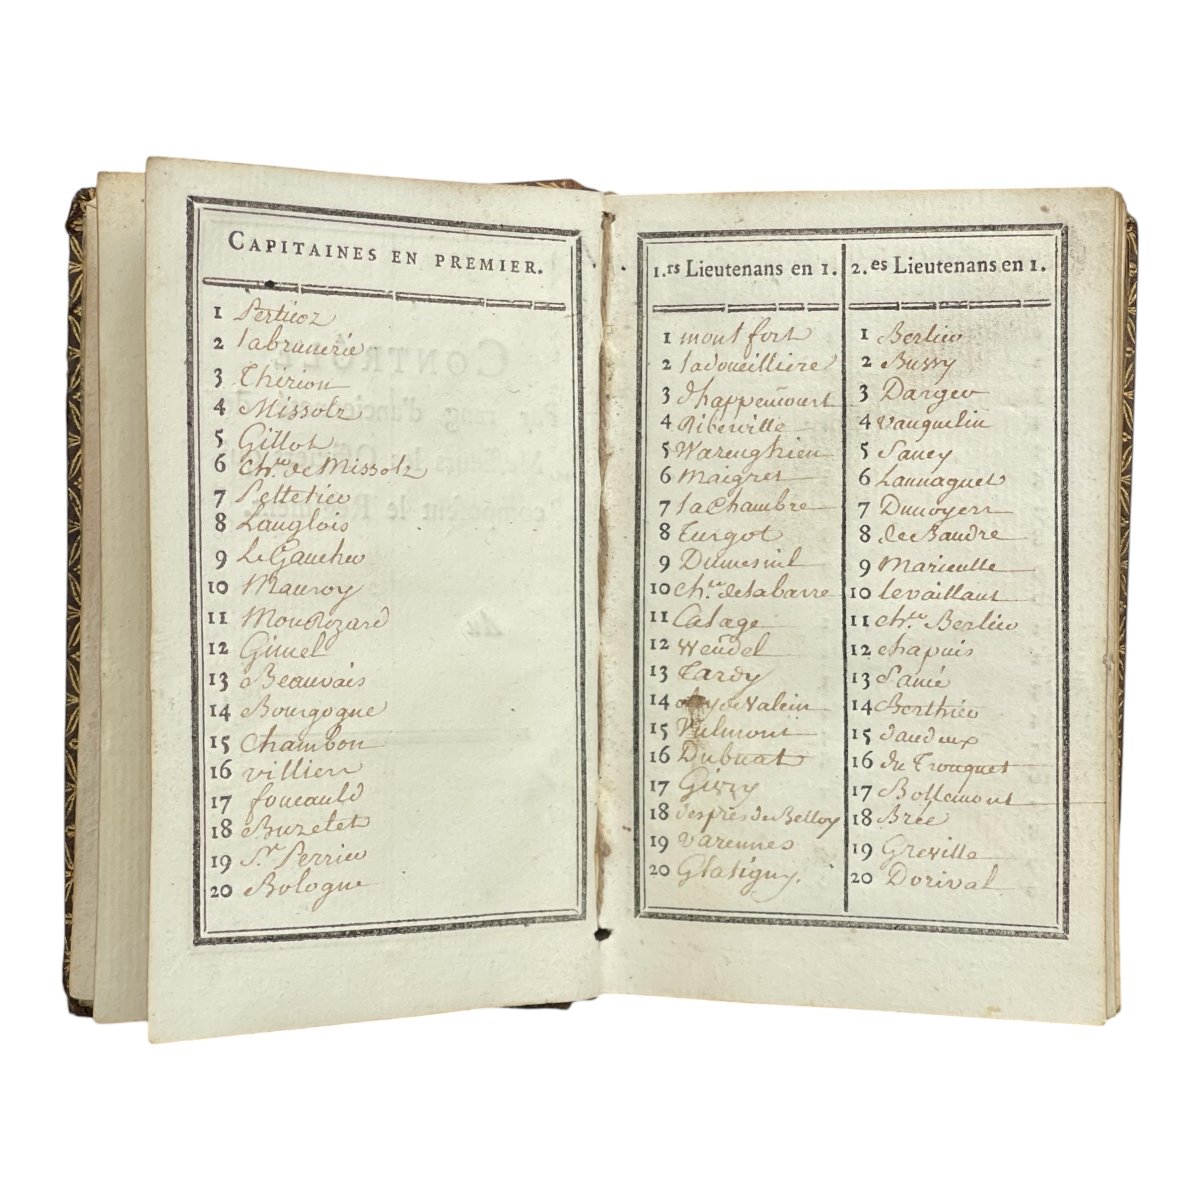 CAPITAINES EN PREMIER.
1 Perticoz
2 Labrunerie
3 Thirion
4 Missolz
5 Gillot
6 Ch.er de Missolz
7 Pelletier
8 Langlois
9 Le Gaucher
10 Mauroy
11 MonRozard
12 Gimel
13 Beauvais
14 Bourgogne
15 Chambon
16 villiers
17 foucauld
18 Buzelet
19 S.t Perrier
20 Bologne
1.rs Lieutenans en 1.
1 mont fort
2 ladoueilliere
3 d'happencourt
4 Riberville
5 Warenghien
6 Maigret
7 la Chambre
8 Turgot
9 Dumesnil
10 Ch.er de la barre
11 Calage
12 Wendel
13 Tardy
14 de Valein
15 Vulmont
16 Dubuat
17 Givry
18 després de Belloy
19 Varennes
20 Glatigny.
2.es Lieutenans en 1.
1 Berlier
2 Bussy
3 Darger
4 Vauquelin
5 Sancy
6 Lannaguet
7 Dunoyer
8 de Baudre
9 Marieulle
10 levaillant
11 ch.er Berlier
12 chapuis
13 Sanié
14 Berthier
15 daudeux
16 du Tronquet
17 Bollemont
18 Brée
19 Greville
20 Dorival